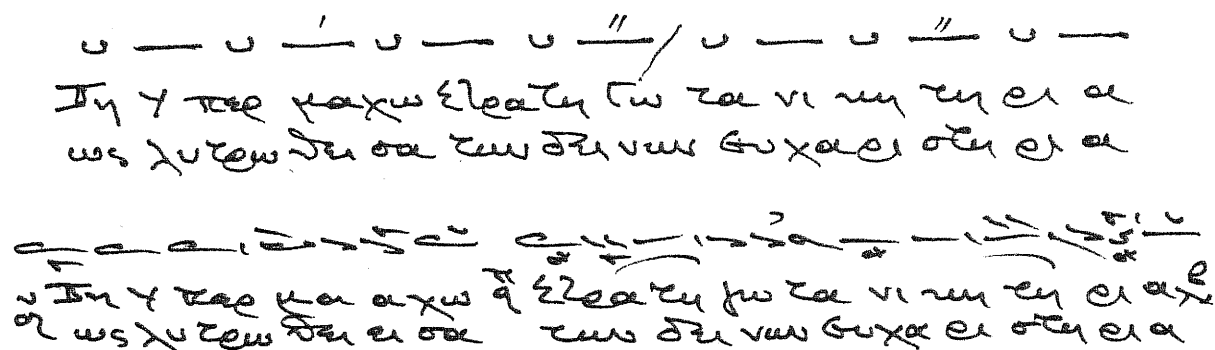 Τη Υ περ μαχω Στρατη Γω τα νι κη τη ρι α
ως λυ τρω θει σα των δει νων Ευ χα ρι στη ρι α
Τη Υ περ μα α χω Στρα τη γω τα νι κη τη ρι α
ως λυ τρω θει ει σα των δει νων Ευ χα ρι στη ρι α